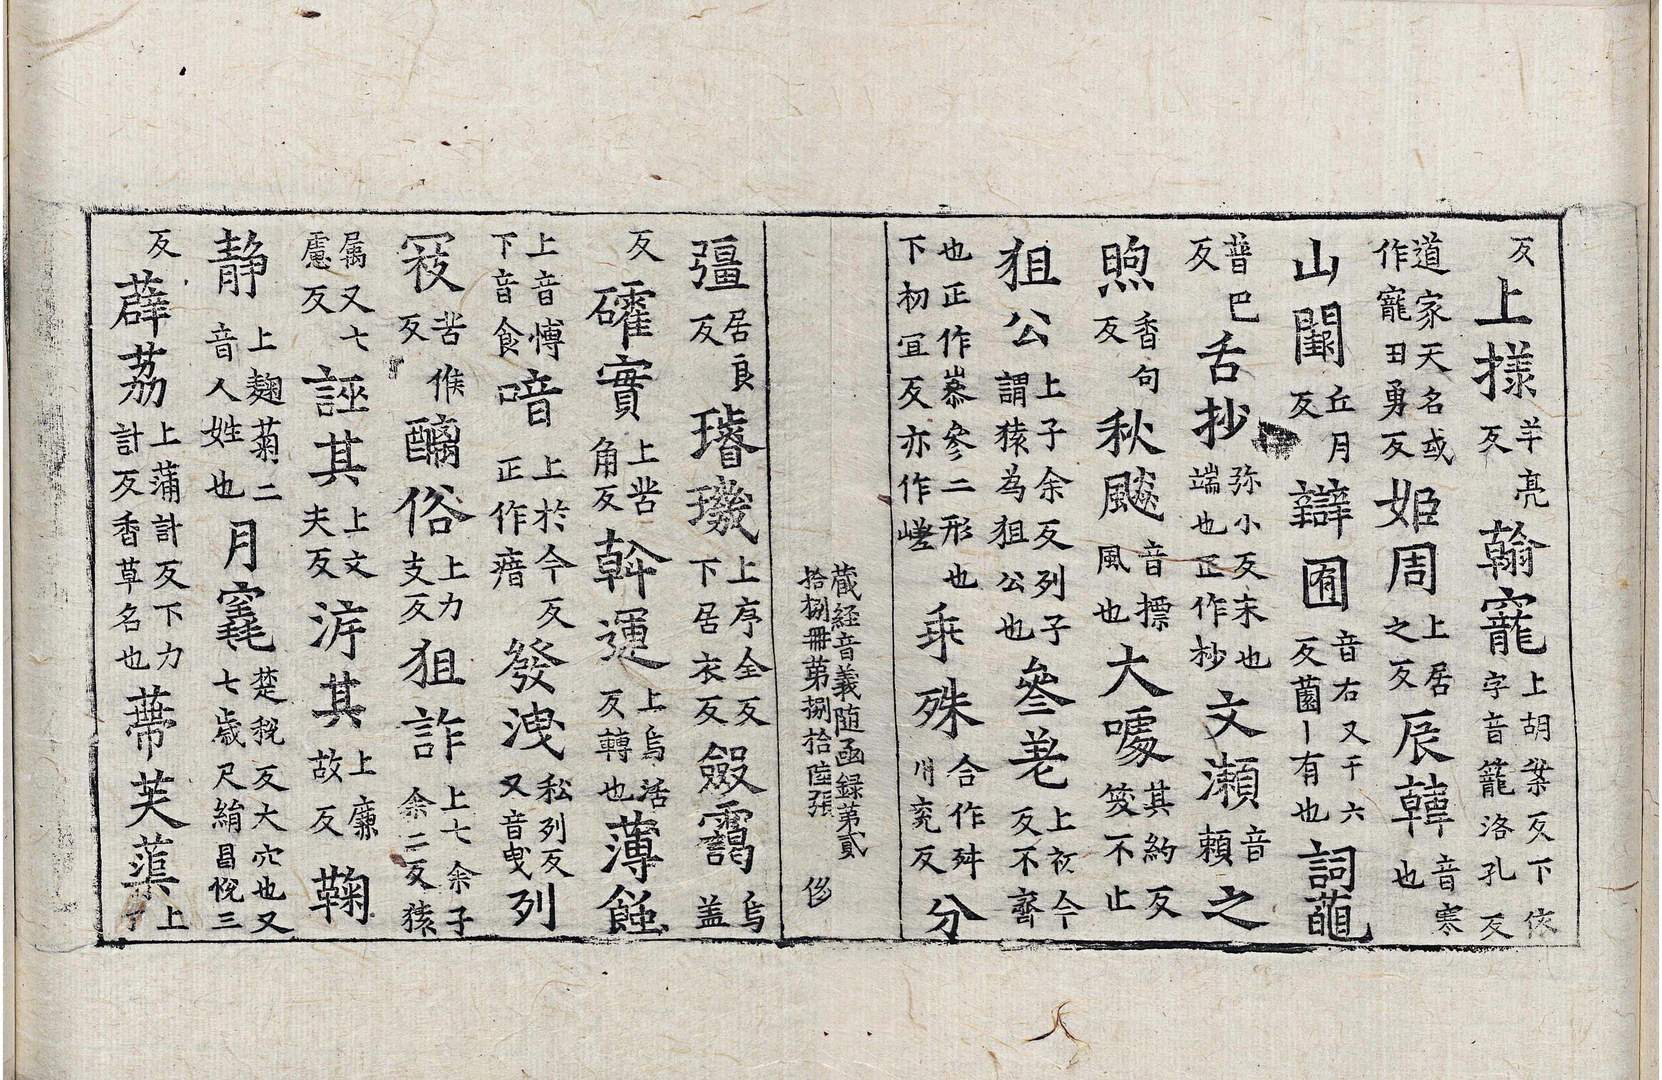 反上㨾羊亮反翰寵上胡案反下依字音籠洛孔反
道家天名或作寵丑勇反姬周上居之反辰韓音寒也
山闉丘月反辯囿音右又于六反薗一有也詞
普巴反舌抄弥小反末也端也正作杪文瀬音頼之
煦香句反秋飈音摽風也大噱其約反笑不止
狙公上子余反列子謂猿為狙公也參差上初今反不齊
也正作嵾參二形也下初宜反亦作嵯乖殊合作舛川兖反分
蔵経音義随函録第貳拾捌冊第捌拾陸張 侈
彊居良反璿璣上序全反下居衣反斂靄烏盖
反礭實上苦角反斡運上烏活反轉也薄蝕
上音愽下音食喑上於今反正作瘖發洩私列反又音曵列
冦苦候反醨俗上力支反狙詐上七余子余二反猿
属又七慮反誣其上文夫反泝其上廉故反鞠
静上麹菊二音人姓也月竁楚税反大穴也又七歳尺絹昌悅三
反薜荔上蒲計反下力計反香草名也蔕芙蕖上丁